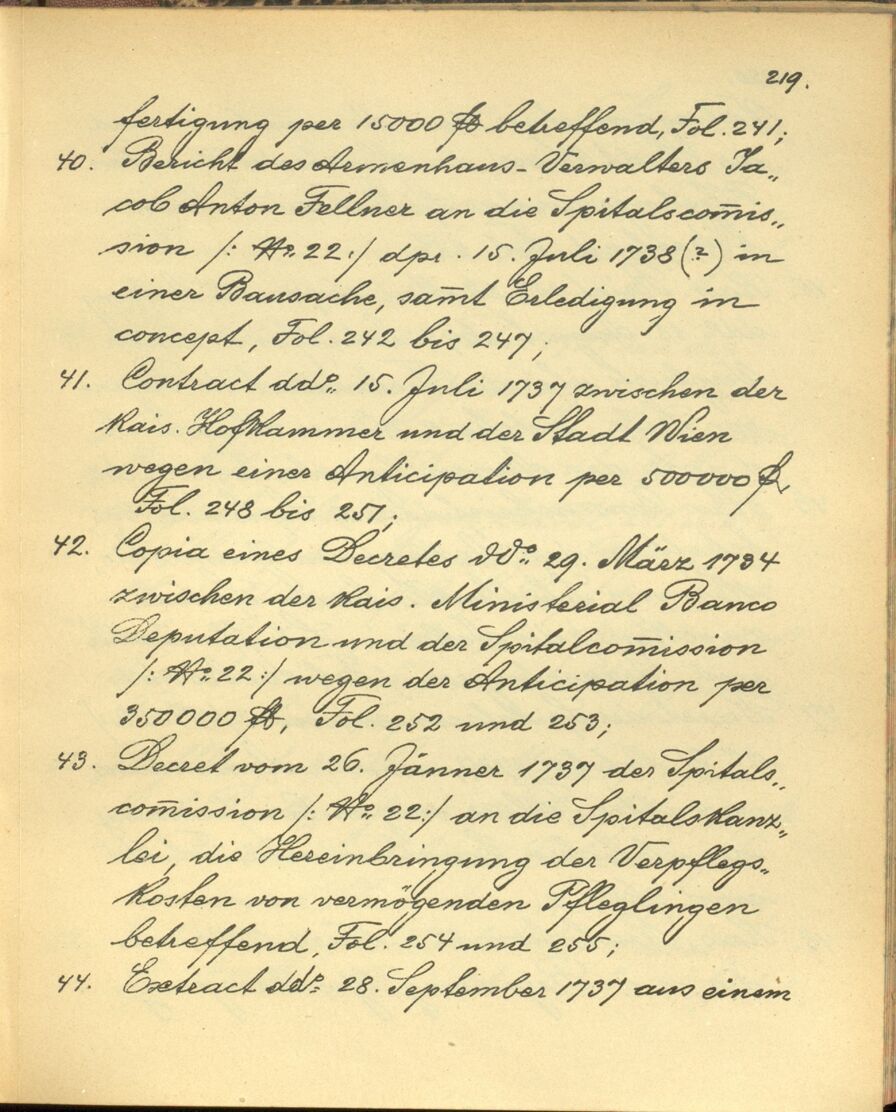 219.
fertigung per 15000 fl betreffend, Fol. 241;
40. Bericht des Armenhaus-Verwalters Ja„
cob Anton Fellner an die Spitalscom̄is„
sion /: No. 22 :/ dpr. 15. Juli 1738 (?) in
einer Bausache, sam̄t Erledigung in
concept, Fol. 242 bis 247;
41. Contract ddo. 15. Juli 1737 zwischen der
kais. Hofkammer und der Stadt Wien
wegen einer Anticipation per 500000 fl,
Fol. 248 bis 251;
42. Copia eines Decretes ddo. 29. März 1734
zwischen der kais. Ministerial Banco
Deputation und der Spitalcom̄ission
/: No. 22 :/ wegen der Anticipation per
350000 fl, Fol. 252 und 253;
43. Decret vom 26. Jänner 1737 der Spitals„
com̄ission /: No. 22 :/ an die Spitalskanz„
lei, die Hereinbringung der Verpflegs„
kosten von vermögenden Pfleglingen
betreffend, Fol. 254 und 255;
44. Extract ddo. 28. September 1737 aus einem